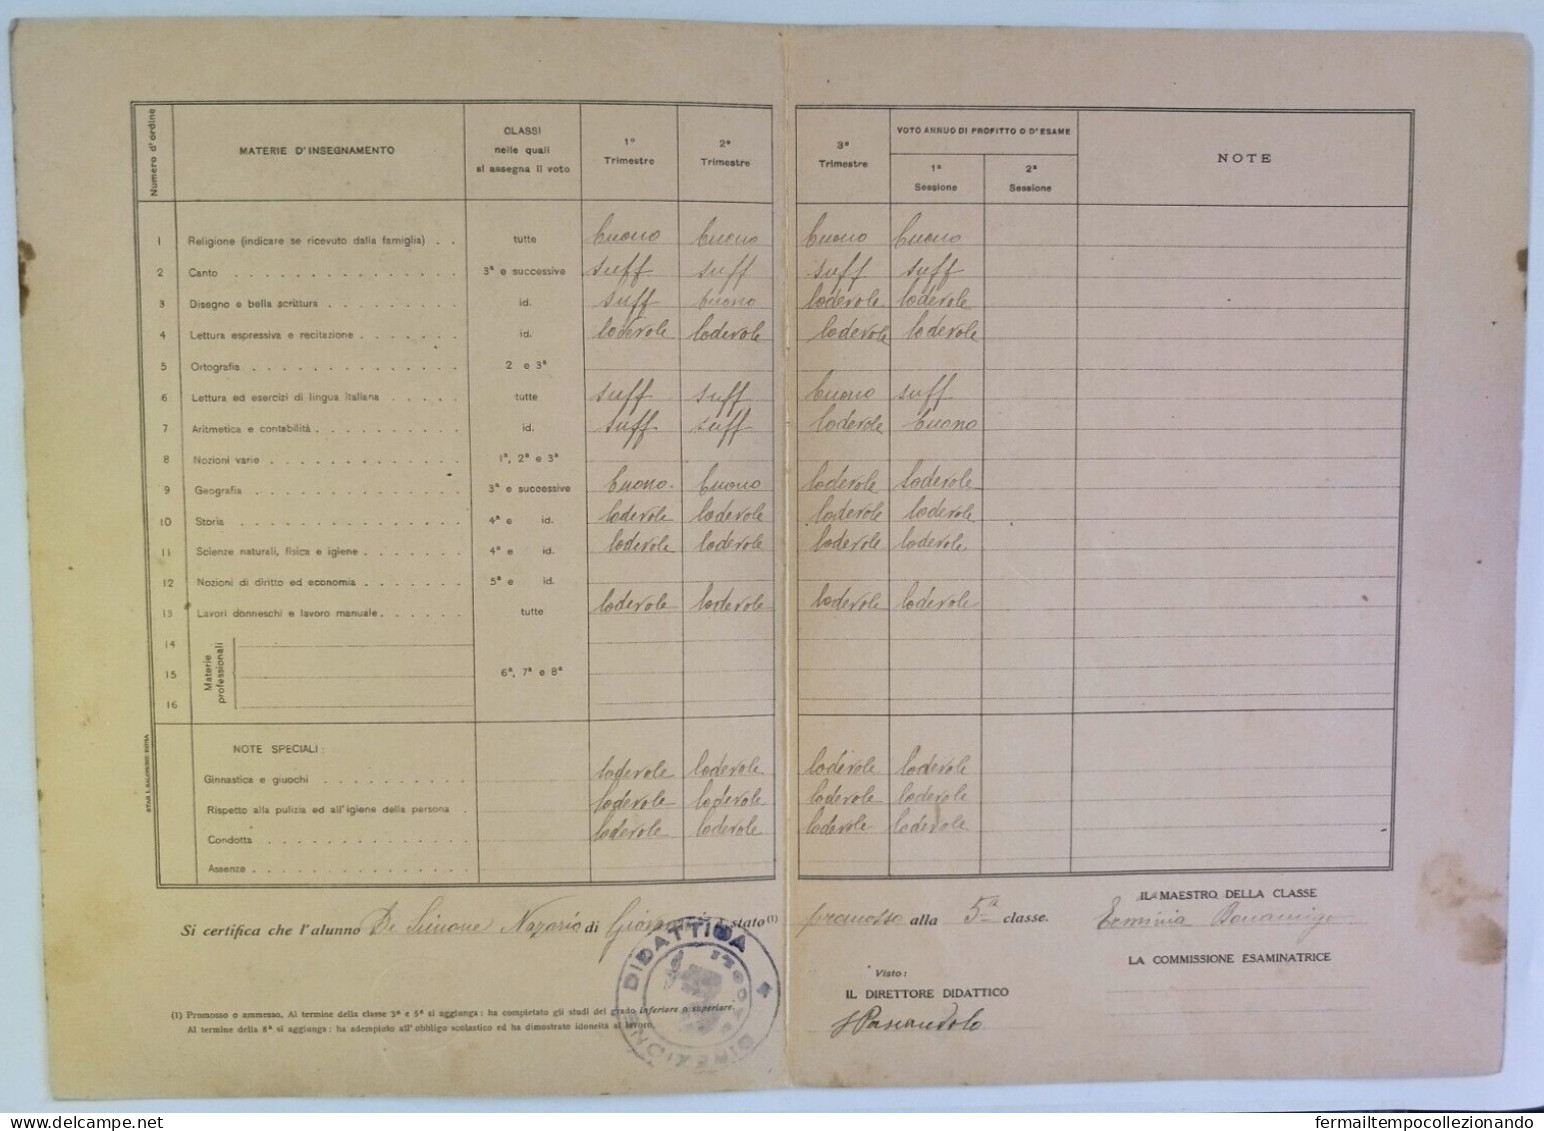 Numero d'ordine MATERIE D'INSEGNAMENTO CLASSI nelle quali si assegna il voto 1º Trimestre 2º Trimestre 3º Trimestre VOTO ANNUO DI PROFITTO O D'ESAME 1ª Sessione 2ª Sessione NOTE
1 Religione (indicare se ricevuto dalla famiglia) . . tutte buono buono buono buono
2 Canto . . . . . . . . . . . . . . . 3ª e successive suff suff suff suff
3 Disegno e bella scrittura . . . . . . . . . id. suff buono lodevole lodevole
4 Lettura espressiva e recitazione . . . . . . . id. lodevole lodevole lodevole lodevole
5 Ortografia . . . . . . . . . . . . . . 2 e 3ª
6 Lettura ed esercizi di lingua italiana . . . . . tutte suff suff buono suff
7 Aritmetica e contabilità . . . . . . . . . . id. suff suff lodevole buono
8 Nozioni varie . . . . . . . . . . . . . 1ª, 2ª e 3ª
9 Geografia . . . . . . . . . . . . . . 3ª e successive buono. buono lodevole lodevole
10 Storia . . . . . . . . . . . . . . . 4ª e id. lodevole lodevole lodevole lodevole
11 Scienze naturali, fisica e igiene . . . . . . . 4ª e id. lodevole lodevole lodevole lodevole
12 Nozioni di diritto ed economia . . . . . . . 5ª e id.
13 Lavori donneschi e lavoro manuale. . . . . . tutte lodevole lodevole lodevole lodevole
14
15 Materie professionali 6ª, 7ª e 8ª
16
NOTE SPECIALI:
Ginnastica e giuochi . . . . . . . . . . lodevole lodevole lodevole lodevole
Rispetto alla pulizia ed all'igiene della persona . lodevole lodevole lodevole lodevole
Condotta . . . . . . . . . . . . . lodevole lodevole lodevole lodevole
Assenze . . . . . . . . . . . . . .
STAB. L. SALOMONE ROMA
Si certifica che l'alunno De Simone Nazario di è stato (1) promosso alla 5ª classe.
IL MAESTRO DELLA CLASSE
Erminia Bonamigo
LA COMMISSIONE ESAMINATRICE
Visto:
IL DIRETTORE DIDATTICO
DIREZIONE DIDATTICA
(1) Promosso o ammesso. Al termine della classe 3ª e 5ª si aggiunga: ha completato gli studi del grado inferiore o superiore.
Al termine della 8ª si aggiunga: ha adempiuto all'obbligo scolastico ed ha dimostrato idoneità al lavoro.
fermailtempocollezionando